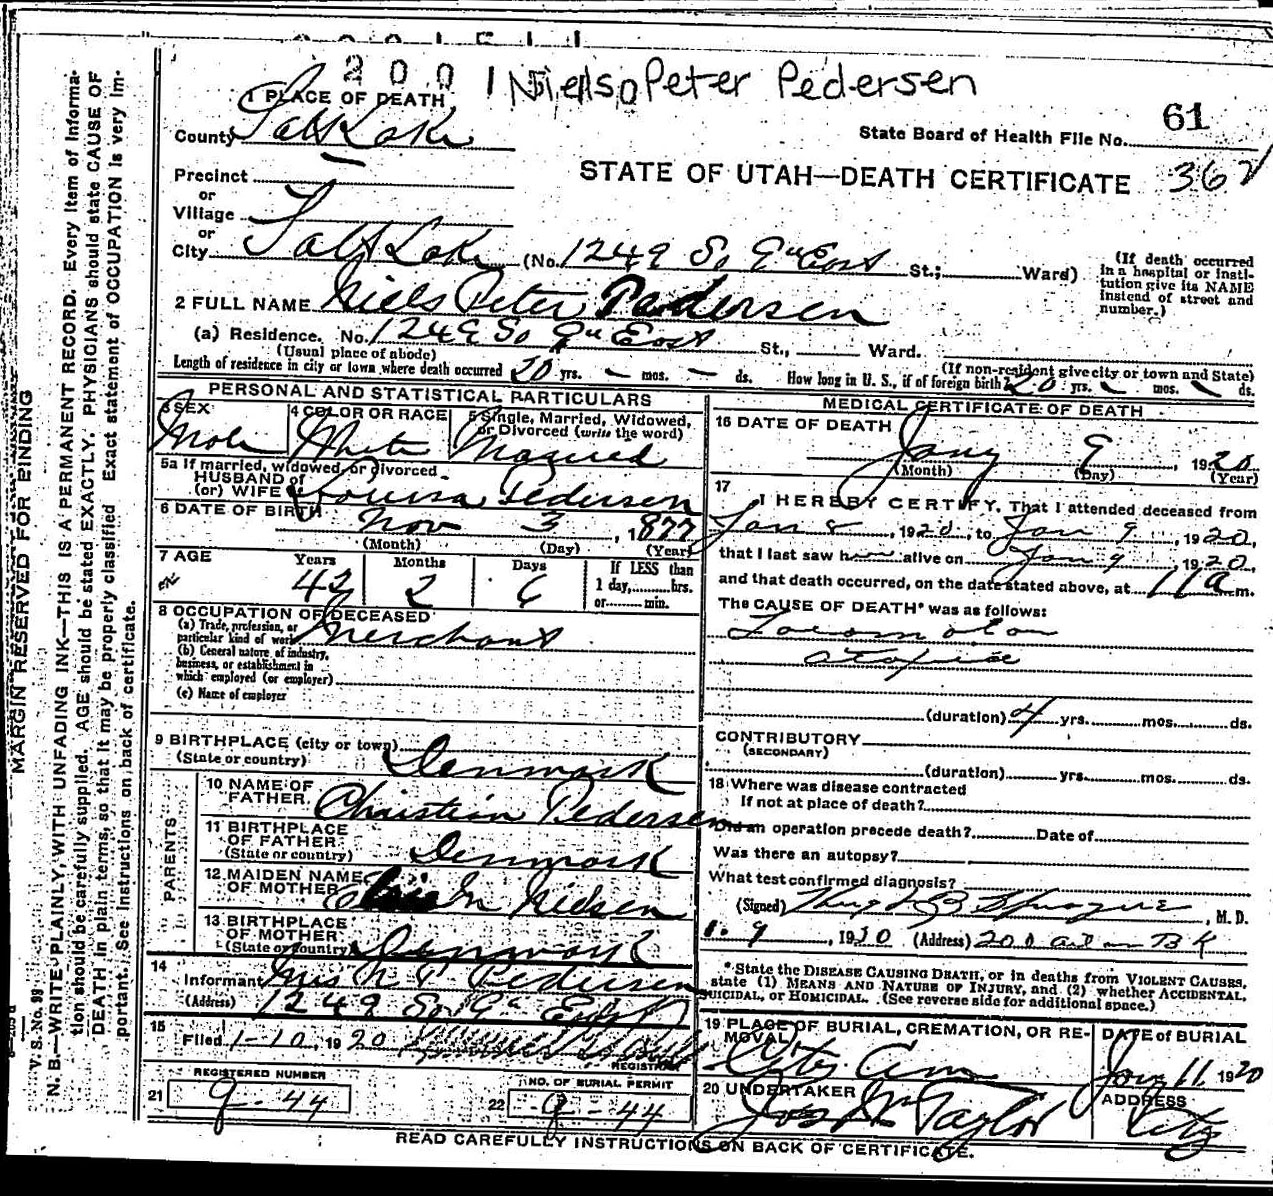 2001 Niels Peter Pedersen
1 PLACE OF DEATH
County Salt Lake
State Board of Health File No. 61
STATE OF UTAH—DEATH CERTIFICATE 362
Precinct
or
Village
or
City Salt Lake (No. 1249 So 9th East St.; Ward)
(If death occurred in a hospital or institution give its NAME instead of street and number.)
2 FULL NAME Niels Peter Pedersen
(a) Residence. No. 1249 So 9th East St., Ward.
(Usual place of abode) (If non-resident give city or town and State)
Length of residence in city or town where death occurred 20 yrs. — mos. — ds. How long in U. S., if of foreign birth? 20 yrs. mos. ds.
PERSONAL AND STATISTICAL PARTICULARS
3 SEX Male
4 COLOR OR RACE White
5 Single, Married, Widowed, or Divorced (write the word) Married
5a If married, widowed, or divorced
HUSBAND of
(or) WIFE of Louisa Pedersen
6 DATE OF BIRTH Nov 3, 1877
(Month) (Day) (Year)
7 AGE Years 42 Months 2 Days 6 If LESS than 1 day, hrs. or min.
8 OCCUPATION OF DECEASED
(a) Trade, profession, or particular kind of work Merchant
(b) General nature of industry, business, or establishment in which employed (or employer)
(c) Name of employer
9 BIRTHPLACE (city or town)
(State or country) Denmark
PARENTS
10 NAME OF FATHER Christian Pedersen
11 BIRTHPLACE OF FATHER (State or country) Denmark
12 MAIDEN NAME OF MOTHER M Nielsen
13 BIRTHPLACE OF MOTHER (State or country) Denmark
14 Informant Mrs N P Pedersen
(Address) 1249 So 9th East
15 Filed 1-10, 1920
REGISTRAR
21 REGISTERED NUMBER 9-44
22 NO. OF BURIAL PERMIT 9-44
MEDICAL CERTIFICATE OF DEATH
16 DATE OF DEATH Jany 9, 1920
(Month) (Day) (Year)
17 I HEREBY CERTIFY, That I attended deceased from
Jan 8, 1920, to Jan 9, 1920,
that I last saw him alive on Jan 9, 1920,
and that death occurred, on the date stated above, at 11 a m.
The CAUSE OF DEATH* was as follows:
Locomotor
ataxia
(duration) 4 yrs. mos. ds.
CONTRIBUTORY
(SECONDARY)
(duration) yrs. mos. ds.
18 Where was disease contracted
If not at place of death?
Did an operation precede death? Date of
Was there an autopsy?
What test confirmed diagnosis?
(Signed) Hugh B Sprague, M. D.
1.9, 1920 (Address)
*State the DISEASE CAUSING DEATH, or in deaths from VIOLENT CAUSES, state (1) MEANS AND NATURE OF INJURY, and (2) whether ACCIDENTAL, SUICIDAL, or HOMICIDAL. (See reverse side for additional space.)
19 PLACE OF BURIAL, CREMATION, OR REMOVAL City Cem
DATE of BURIAL Jany 11 1920
20 UNDERTAKER Jos Wm Taylor
ADDRESS City
READ CAREFULLY INSTRUCTIONS ON BACK OF CERTIFICATE.
MARGIN RESERVED FOR BINDING
V. S. No. 99
N. B.—WRITE PLAINLY, WITH UNFADING INK—THIS IS A PERMANENT RECORD. Every item of information should be carefully supplied. AGE should be stated EXACTLY. PHYSICIANS should state CAUSE OF DEATH in plain terms, so that it may be properly classified. Exact statement of OCCUPATION is very important. See instructions on back of certificate.